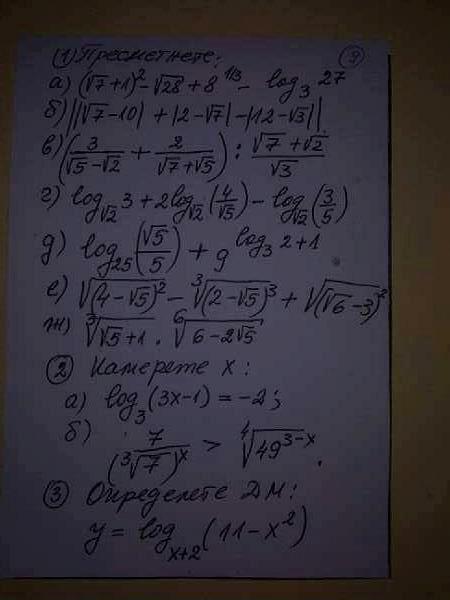 ① Пресметнете: ⑨
а) (√7+1)² - √28 + 8^(1/3) - log₃ 27
б) ||√7-10| + |2-√7| - |12-√3||
в) (3/(√5-√2) + 2/(√7+√5)) : (√7+√2)/√3
г) log_√2 3 + 2log_√2 (4/√5) - log_√2 (3/5)
д) log₂₅ (√5/5) + 9^(log₃ 2+1)
е) √((4-√5)²) - ∛((2-√5)³) + √((√6-3)²)
ж) ∛(√5+1) · ⁶√(6-2√5)
② Намерете х:
а) log₃ (3x-1) = -2;
б) 7/(∛7)^x > ⁴√(49^(3-x)).
③ Определете ДМ:
y = log_(x+2) (11-x²)